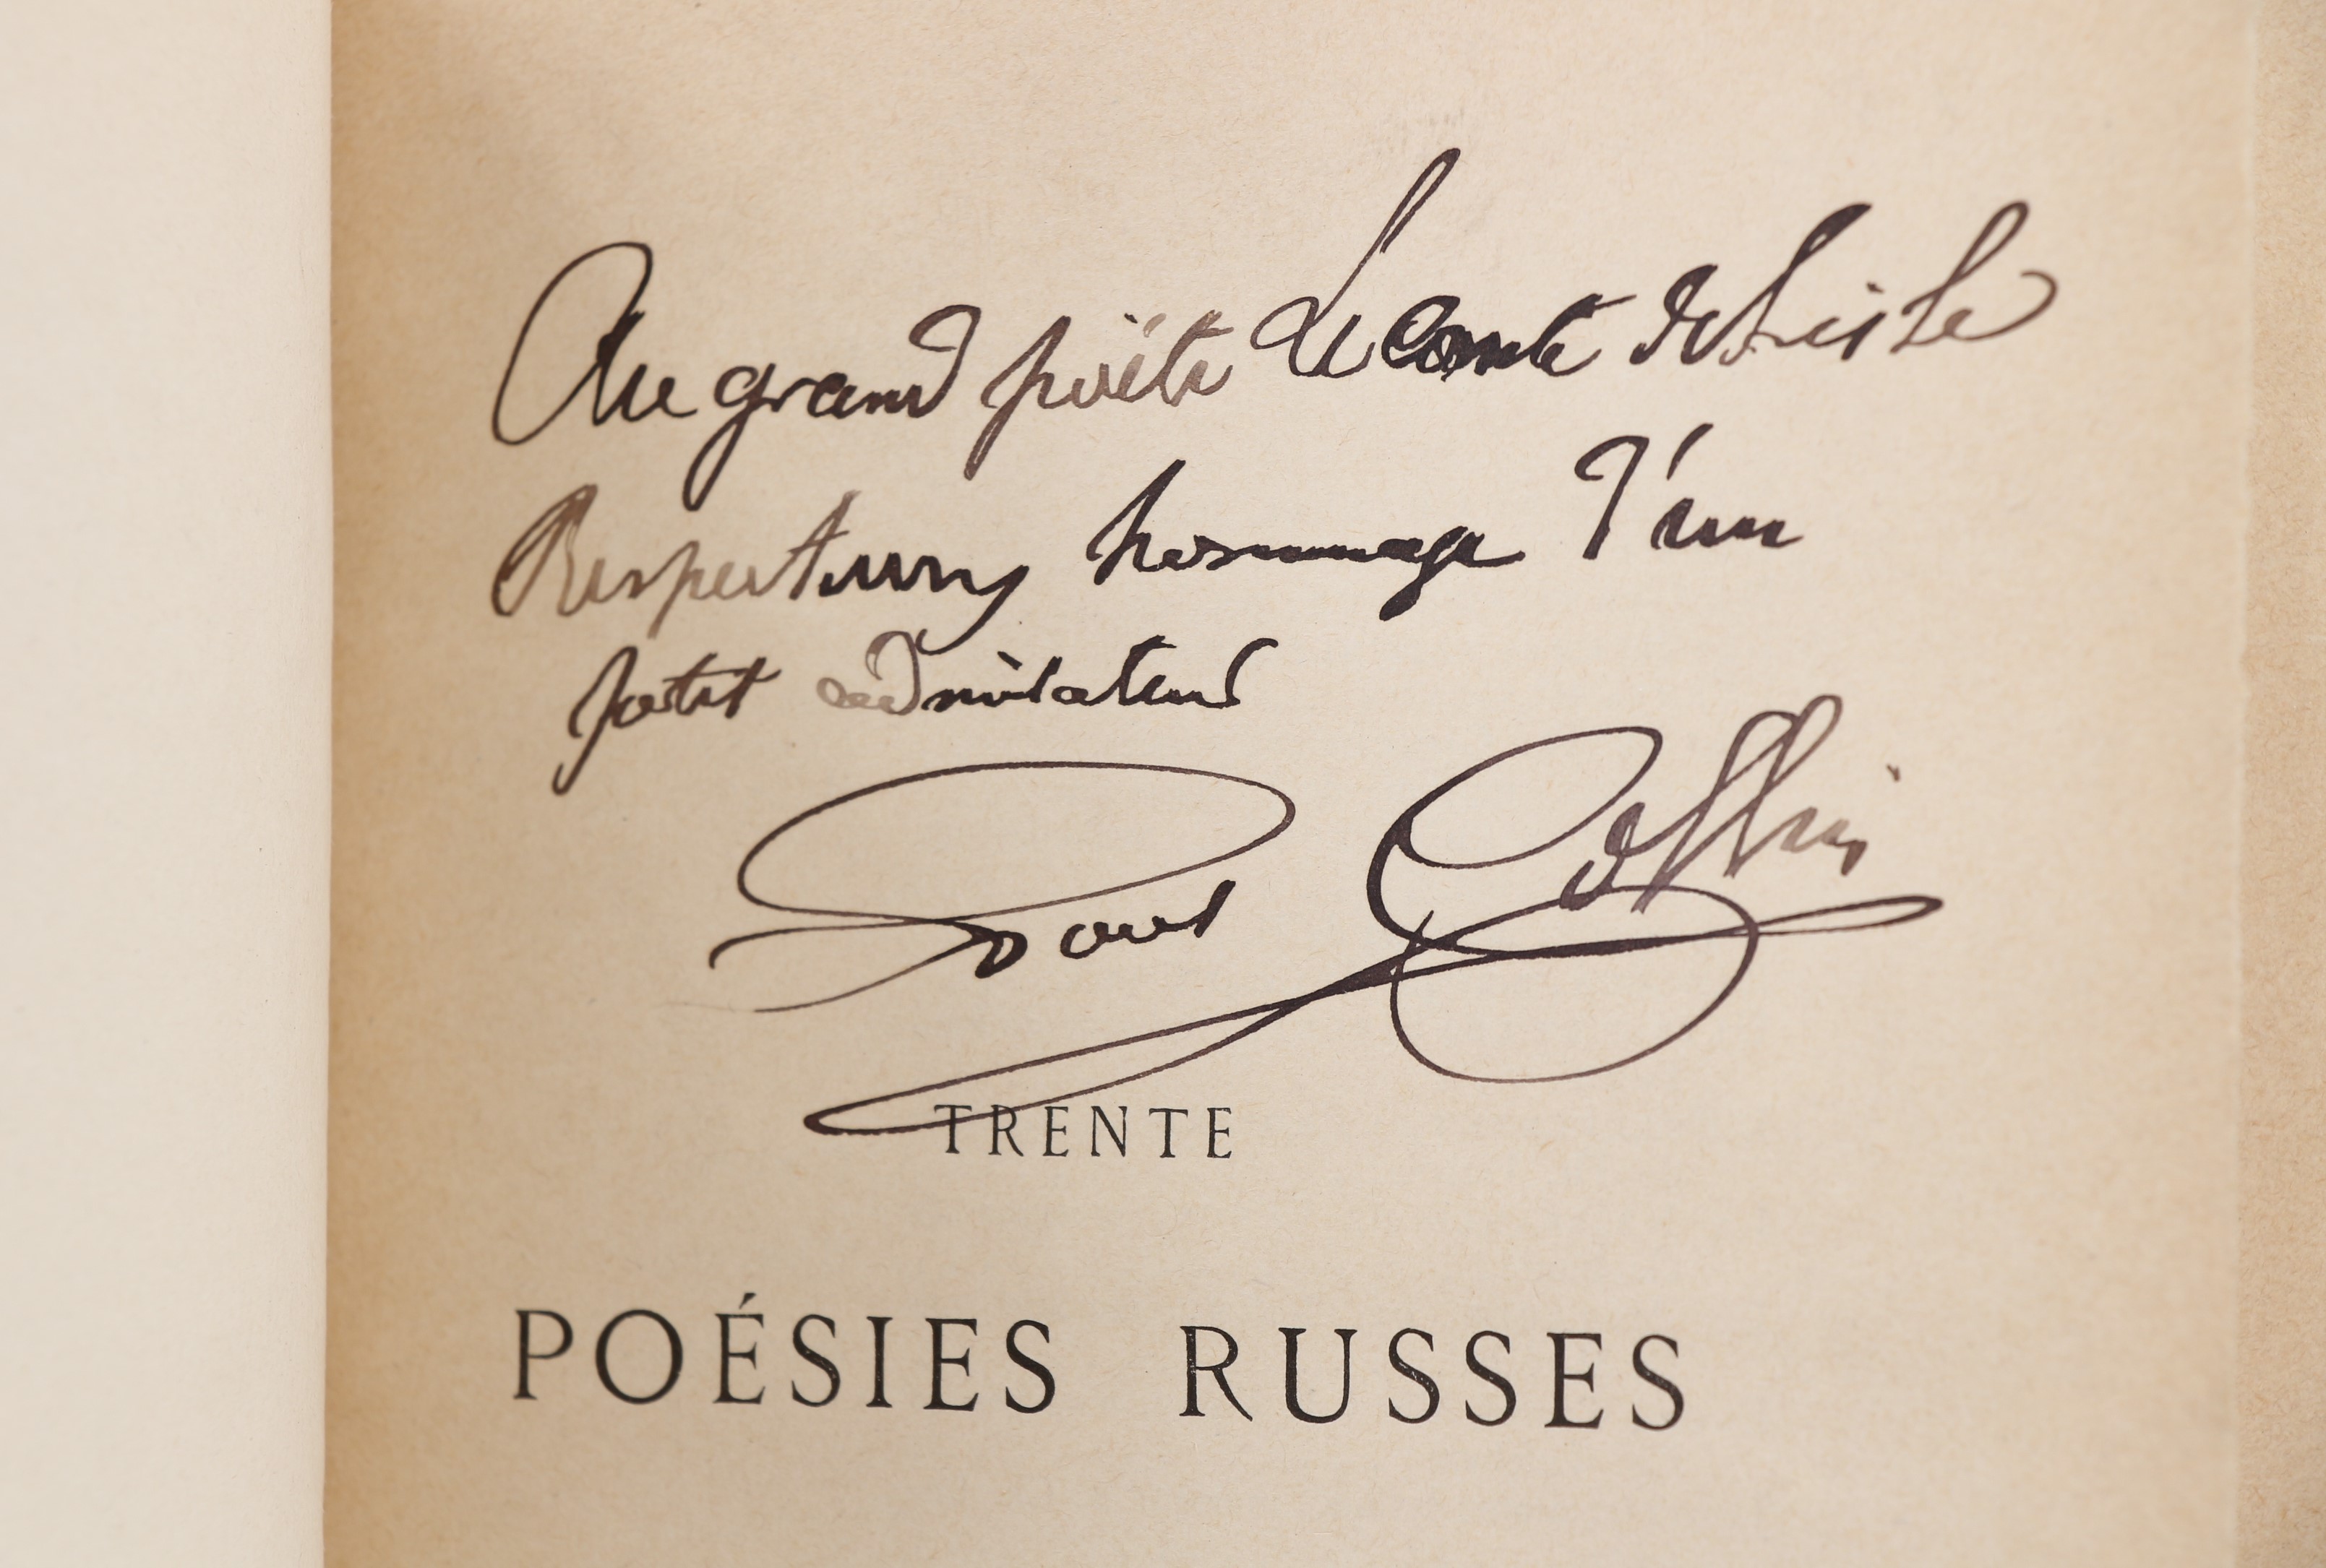 Au grand poëte Leconte de Lisle
Respectueux hommage d'un
petit admirateur
Paul Collin
TRENTE
POÉSIES RUSSES